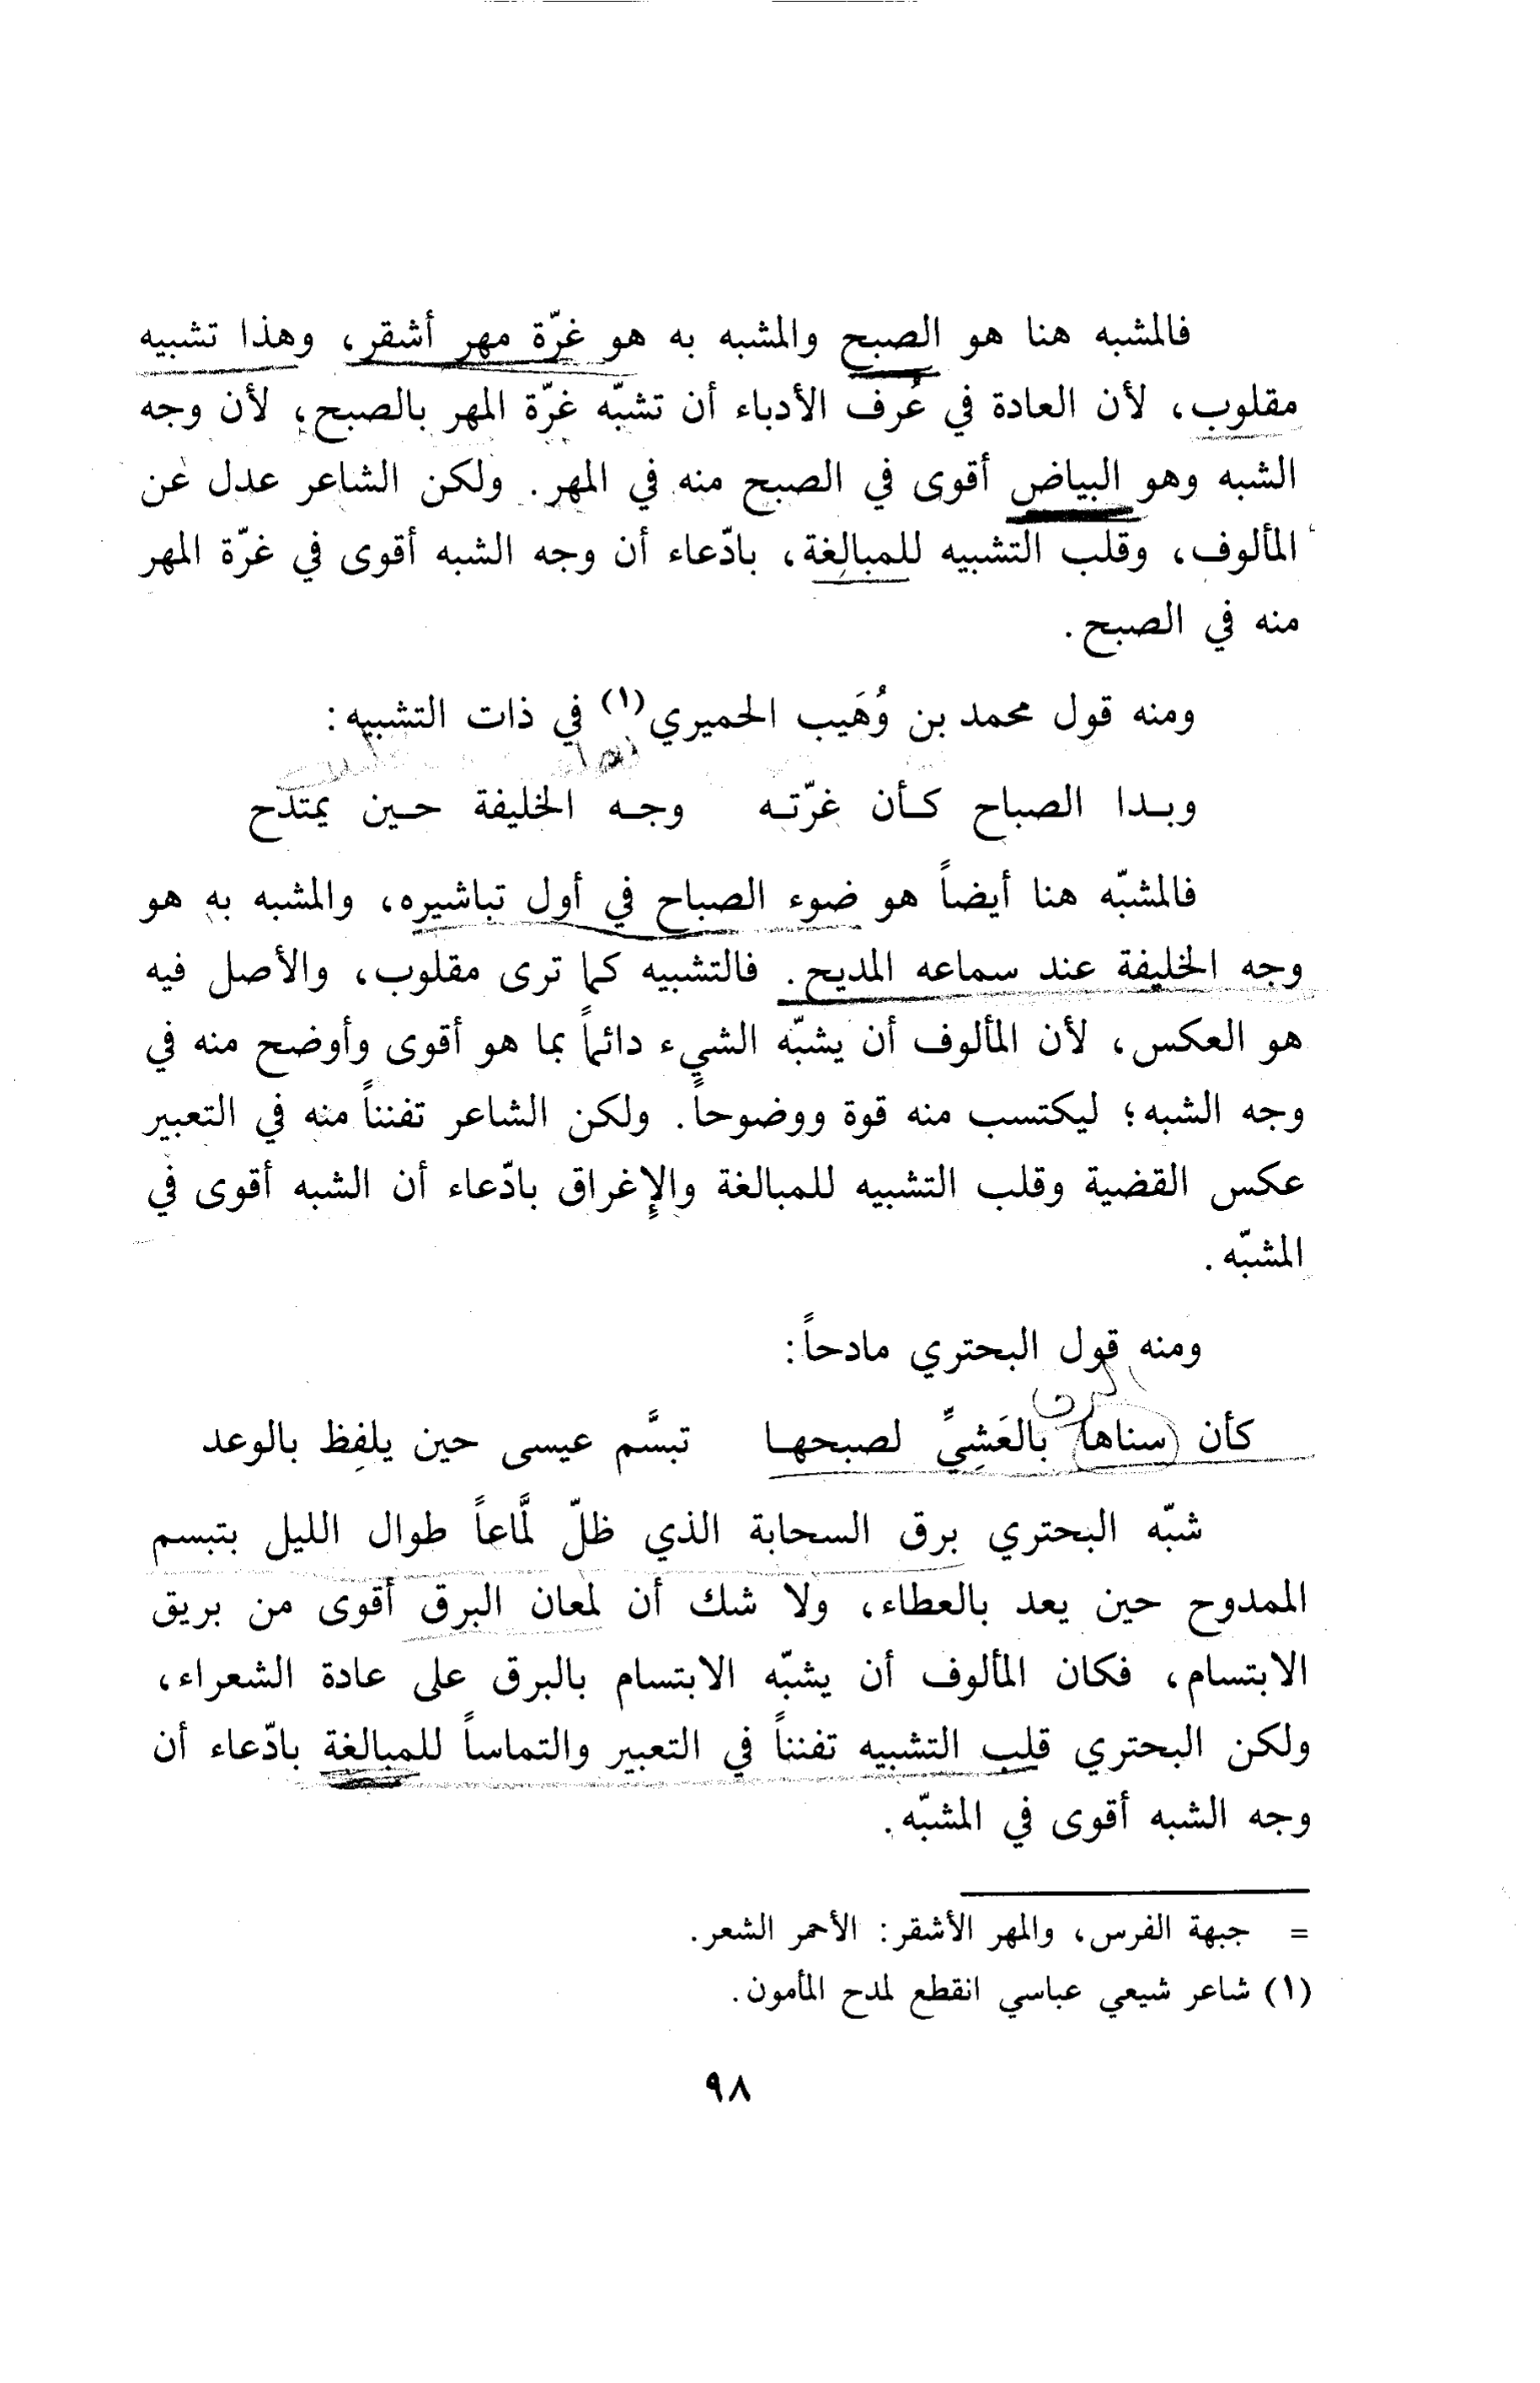 فالمشبه هنا هو الصبح والمشبه به هو غرّة مهر أشقر، وهذا تشبيه
مقلوب، لأن العادة في عُرف الأدباء أن تشبّه غرّة المهر بالصبح، لأن وجه
الشبه وهو البياض أقوى في الصبح منه في المهر. ولكن الشاعر عدل عن
المألوف، وقلب التشبيه للمبالغة، بادّعاء أن وجه الشبه أقوى في غرّة المهر
منه في الصبح.
ومنه قول محمد بن وُهَيب الحميري(١) في ذات التشبيه:
وبـدا الصباح كـأن غرّتـه وجـه الخليفة حـين يمتدح
فالمشبّه هنا أيضاً هو ضوء الصباح في أول تباشيره، والمشبه به هو
وجه الخليفة عند سماعه المديح. فالتشبيه كما ترى مقلوب، والأصل فيه
هو العكس، لأن المألوف أن يشبّه الشيء دائماً بما هو أقوى وأوضح منه في
وجه الشبه؛ ليكتسب منه قوة ووضوحاً. ولكن الشاعر تفنناً منه في التعبير
عكس القضية وقلب التشبيه للمبالغة والإغراق بادّعاء أن الشبه أقوى في
المشبّه.
ومنه قول البحتري مادحاً:
البرق
كأن سناها بالعَشِيِّ لصبحهـا تبسَّم عيسى حين يلفِظ بالوعد
شبّه البحتري برق السحابة الذي ظلّ لمَّاعاً طوال الليل بتبسم
الممدوح حين يعد بالعطاء، ولا شك أن لمعان البرق أقوى من بريق
الابتسام، فكان المألوف أن يشبّه الابتسام بالبرق على عادة الشعراء،
ولكن البحتري قلب التشبيه تفنناً في التعبير والتماساً للمبالغة بادّعاء أن
وجه الشبه أقوى في المشبّه.
= جبهة الفرس، والمهر الأشقر: الأحمر الشعر.
(١) شاعر شيعي عباسي انقطع لمدح المأمون.
٩٨